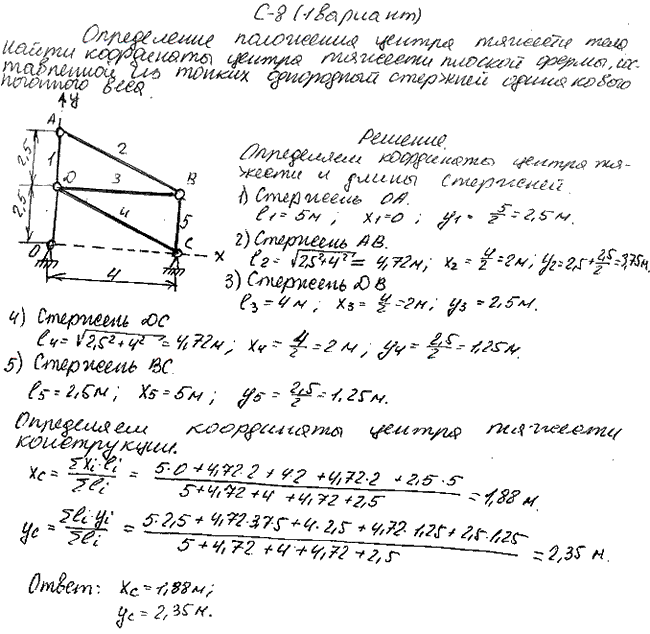 С-8 (1 вариант)
Определение положения центра тяжести тела
найти координаты центра тяжести плоской фермы, сос
тавленной из тонких однородный стержней одинакового
погонного веса.
y
A
2
Решение.
2,5
1
Определяем координаты центра тя-
D
3
B
жести и длины стержней.
1) Стержень OA.
4
5
l1 = 5м; x1=0; y1 = 5/2 = 2,5 м.
2,5
2) Стержень AB.
O
C
x
l2 = √2,5²+4² = 4,72м; x2 = 4/2 = 2м; y2 = 2,5 + 2,5/2 = 3,75м.
4
3) Стержень DB
l3 = 4м; x3 = 4/2 = 2м; y3 = 2,5м.
4) Стержень DC
l4 = √2,5²+4² = 4,72м; x4 = 4/2 = 2 м; y4 = 2,5/2 = 1,25м.
5) Стержень BC.
l5 = 2,5м; x5 = 5м; y5 = 2,5/2 = 1,25м.
Определяем координаты центра тяжести
конструкции.
xc = Σxi·li / Σli = 5·0 + 4,72·2 + 4·2 + 4,72·2 + 2,5·5 / 5 + 4,72 + 4 + 4,72 + 2,5 = 1,88 м.
yc = Σli·yi / Σli = 5·2,5 + 4,72·3,75 + 4·2,5 + 4,72·1,25 + 2,5·1,25 / 5 + 4,72 + 4 + 4,72 + 2,5 = 2,35 м.
Ответ: xc = 1,88м;
yc = 2,35м.